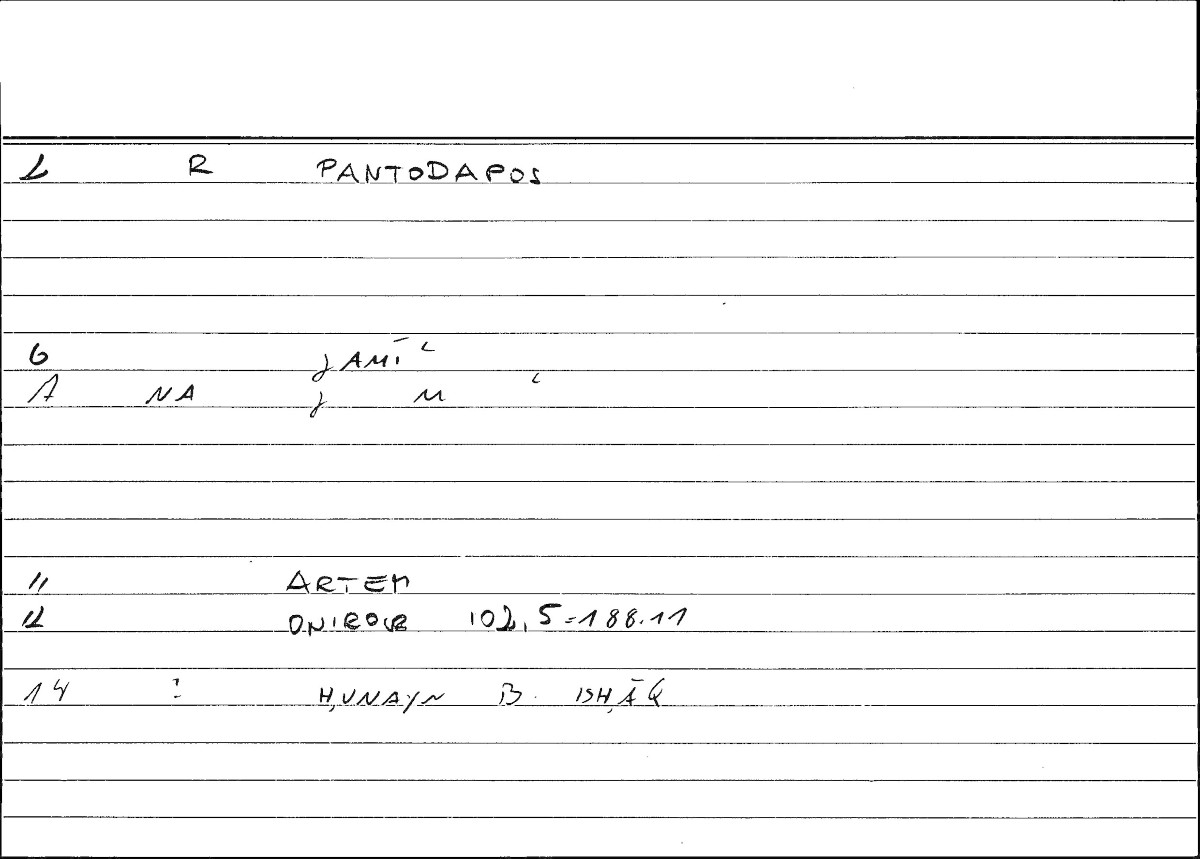 2 R PANTODAPOS
6 JAMĪʿ
A NA J M ʿ
11 ARTEM
12 ONIROCR 102,5=188.11
14 : ḤUNAYN B. ISḤĀQ